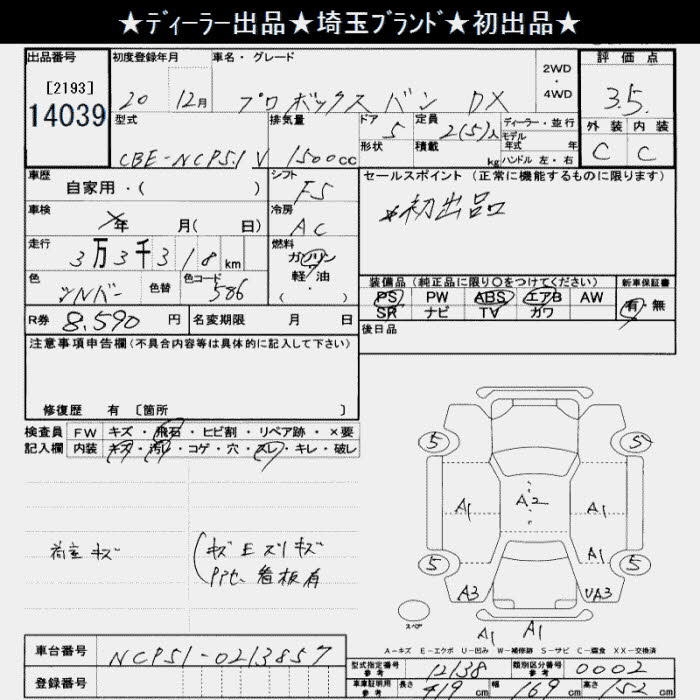 ★ディーラー出品★埼玉ブランド★初出品★
出品番号
[2193]
14039
初度登録年月
20 12月
車名・グレード
プロボックスバン DX
2WD
・
4WD
評価点
3.5
外装 内装
C C
型式
CBE-NCP51V
排気量
1500cc
ドア 5
形状
定員 2(5)人
積載 kg
ディーラー・並行
モデル
年式 年
ハンドル 左・右
車歴
自家用・( )
シフト
F5
セールスポイント (正常に機能するものに限ります)
*初出品
車検
年 月( 日)
冷房
AC
走行
3万3千318km
燃料
ガソリン
軽油
( )
色
シルバー
色替
色コード
586
装備品 (純正品に限り○をつけてください)
PS PW ABS エアB AW
SR ナビ TV ガワ
新車保証書
有・無
R券 8.590 円
名変期限 月 日
後日品
注意事項申告欄(不具合内容等は具体的に記入して下さい)
修復歴 有 〔箇所 〕
検査員
記入欄
FW キズ・飛石・ヒビ割・リペア跡・×要
内装 キズ・汚レ・コゲ・穴・スレ・キレ・破し
荷室 キズ
看板有
5 5
A1 A2 A1
A1
5 5
A3 UA3
スペア
A1 A1
A-キズ E-エクボ U-凹み W-補修跡 S-サビ C-腐食 XX-交換済
車台番号 NCP51-0213857
登録番号
型式指定番号
参考
12138
類別区分番号
参考
0002
車庫証明用
参考
長さ 419cm 幅 169cm 高さ 152cm